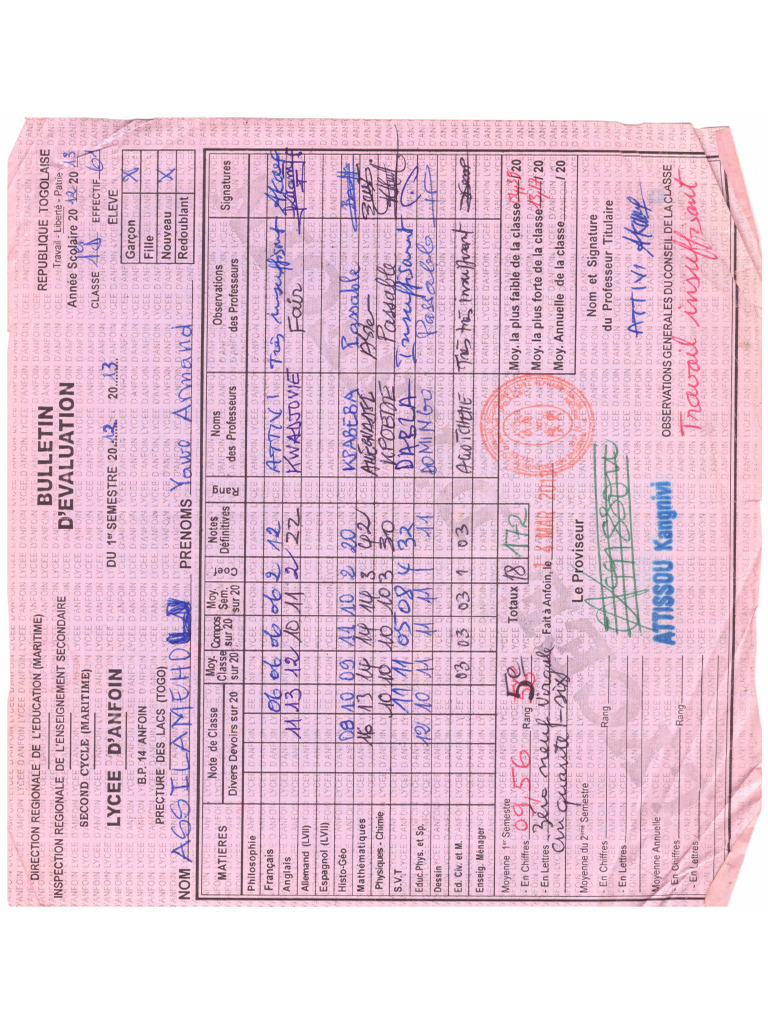 DIRECTION REGIONALE DE L'EDUCATION (MARITIME)
INSPECTION REGIONALE DE L'ENSEIGNEMENT SECONDAIRE
SECOND CYCLE (MARITIME)
LYCEE D'ANFOIN
B.P. 14 ANFOIN
PRECTURE DES LACS (TOGO)
BULLETIN
D'EVALUATION
DU 1er SEMESTRE 2012 2013
REPUBLIQUE TOGOLAISE
Travail - Liberté - Patrie
Année Scolaire 2012-2013
CLASSE EFFECTIF 61
ELEVE
Garçon X
Fille
Nouveau X
Redoublant
NOM ASSILAMEHOU PRENOMS Yawo Armand
MATIERES Note de Classe Divers Devoirs sur 20 Moy. Classe sur 20 Compos sur 20 Moy. Sem. sur 20 Coef. Notes Définitives Rang Noms des Professeurs Observations des Professeurs Signatures
Philosophie
Français 06 06 06 06 2 12 ATTIVI Très insuffisant
Anglais 11 13 12 10 11 2 22 KWADJOVIE Fair
Allemand (LVII)
Espagnol (LVII)
Histo-Géo 08 10 09 11 10 2 20 KPABEBA Passable
Mathématiques 16 13 14 14 14 3 42
Physiques - Chimie 10 10 10 10 3 30 Passable
S.V.T 11 11 05 08 4 32 D'ABLA Insuffisant
Educ.Phys. et Sp. 12 10 11 11 11 1 11 DOMINGO Passable
Dessin
Ed. Civ. et M. 03 03 03 1 03 Très très insuffisant
Enseig. Ménager
Totaux 18 172
Moyenne 1er Semestre
- En Chiffres 09,56 Rang 5e
- En Lettres Zéro neuf Virgule
Cinquante-six
Moyenne du 2ème Semestre
- En Chiffres Rang
- En Lettres
Moyenne Annuelle
- En Chiffres Rang
- En Lettres
Fait à Anfoin, le MAR 201
Le Proviseur
ATTISSOU Kangnivi
Moy. la plus faible de la classe /20
Moy. la plus forte de la classe /20
Moy. Annuelle de la classe / 20
Nom et Signature
du Professeur Titulaire
ATTIVI
OBSERVATIONS GENERALES DU CONSEIL DE LA CLASSE
Travail insuffisant